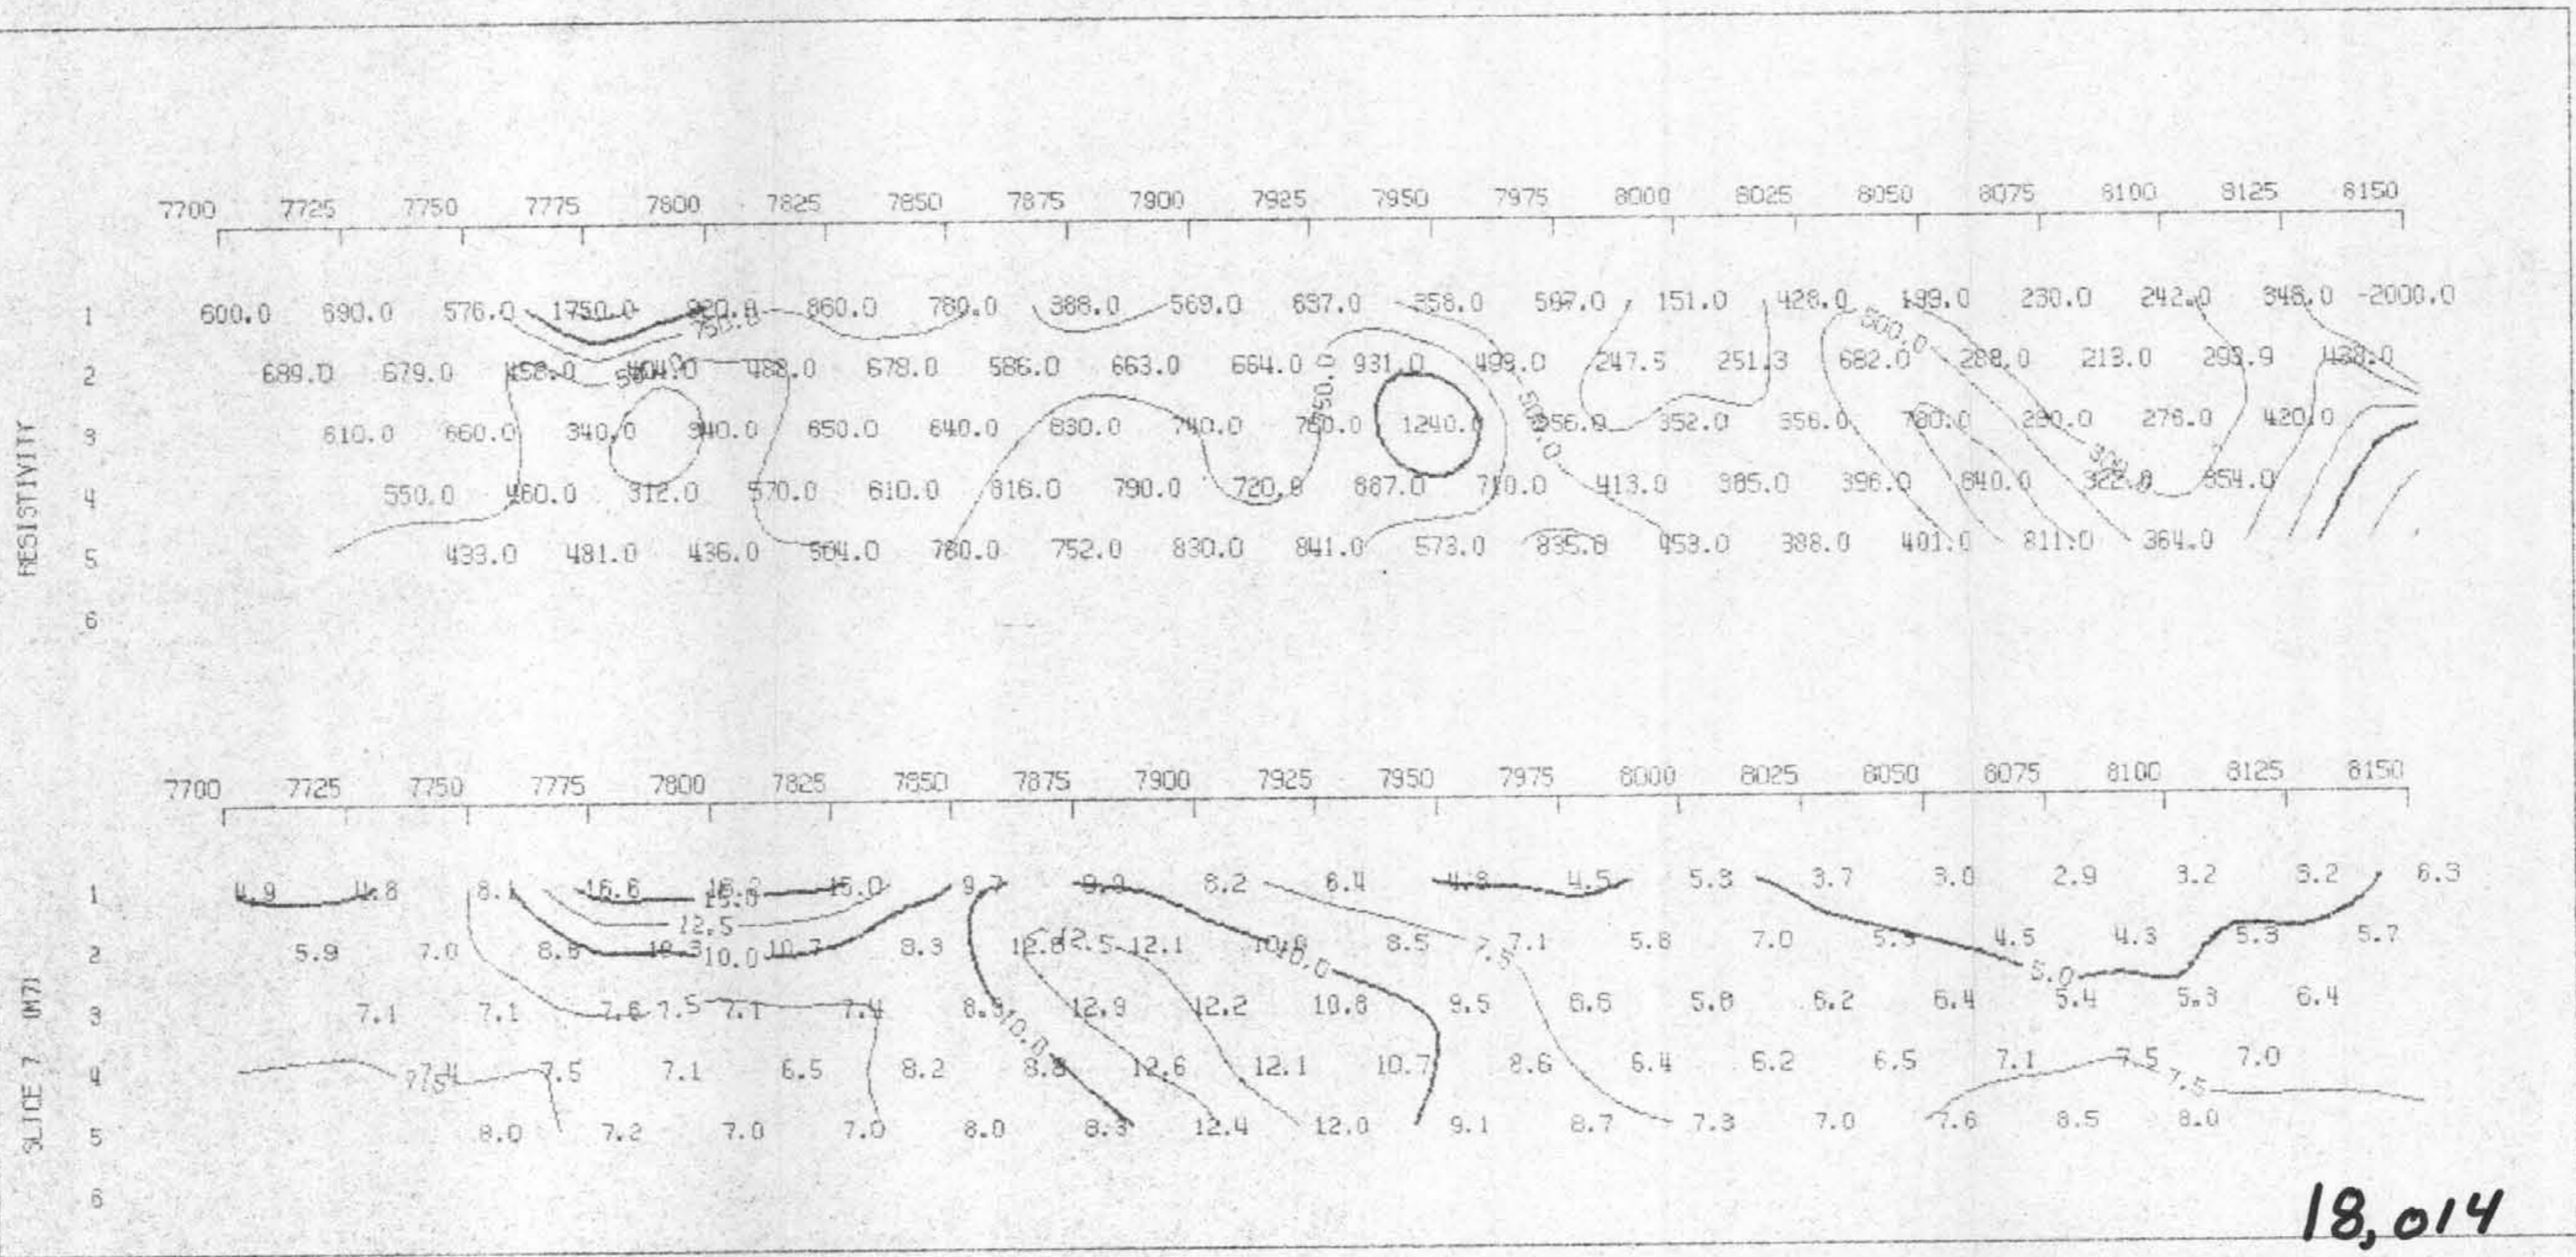 7700 7725 7750 7775 7800 7825 7850 7875 7900 7925 7950 7975 8000 8025 8050 8075 8100 8125 8150
RESISTIVITY
1 600.0 690.0 576.0 1750.0 920.0 860.0 780.0 388.0 569.0 637.0 358.0 567.0 151.0 428.0 199.0 230.0 242.0 348.0 -2000.0
750.0
500.0
2 689.0 679.0 458.0 404.0 488.0 678.0 586.0 663.0 664.0 931.0 498.0 247.5 251.3 682.0 288.0 213.0 293.9 438.0
750.0
500.0
3 610.0 660.0 340.0 340.0 650.0 640.0 830.0 740.0 780.0 1240.0 356.0 352.0 356.0 780.0 290.0 276.0 420.0
4 550.0 460.0 312.0 570.0 610.0 816.0 790.0 720.0 887.0 710.0 413.0 385.0 396.0 840.0 322.0 354.0
5 433.0 481.0 436.0 504.0 780.0 752.0 830.0 841.0 573.0 835.0 453.0 388.0 401.0 811.0 364.0
6
7700 7725 7750 7775 7800 7825 7850 7875 7900 7925 7950 7975 8000 8025 8050 8075 8100 8125 8150
SLICE 7 (M7)
1 4.9 4.8 8.1 16.6 15.0 9.7 9.9 8.2 6.4 4.8 4.5 5.3 3.7 3.0 2.9 3.2 3.2 6.3
15.0
12.5
2 5.9 7.0 8.8 10.3 10.0 10.7 8.3 12.8 12.5 12.1 10.8 10.0 8.5 7.5 7.1 5.8 7.0 5.3 4.5 4.3 5.3 5.7
5.0
3 7.1 7.1 7.6 7.5 7.1 7.4 8.9 12.9 12.2 10.8 9.5 6.6 5.8 6.2 6.4 5.4 5.3 6.4
10.0
4 7.5 7.4 7.5 7.1 6.5 8.2 8.8 12.6 12.1 10.7 8.6 6.4 6.2 6.5 7.1 7.5 7.5 7.0
5 8.0 7.2 7.0 7.0 8.0 8.3 12.4 12.0 9.1 8.7 7.3 7.0 7.6 8.5 8.0
6
18,014